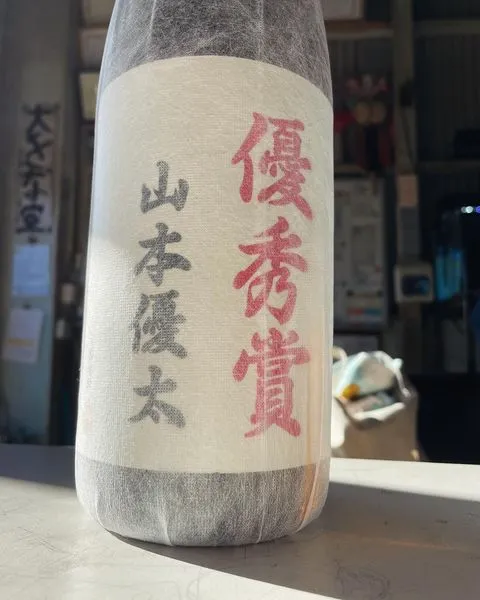 優秀賞
山本優太